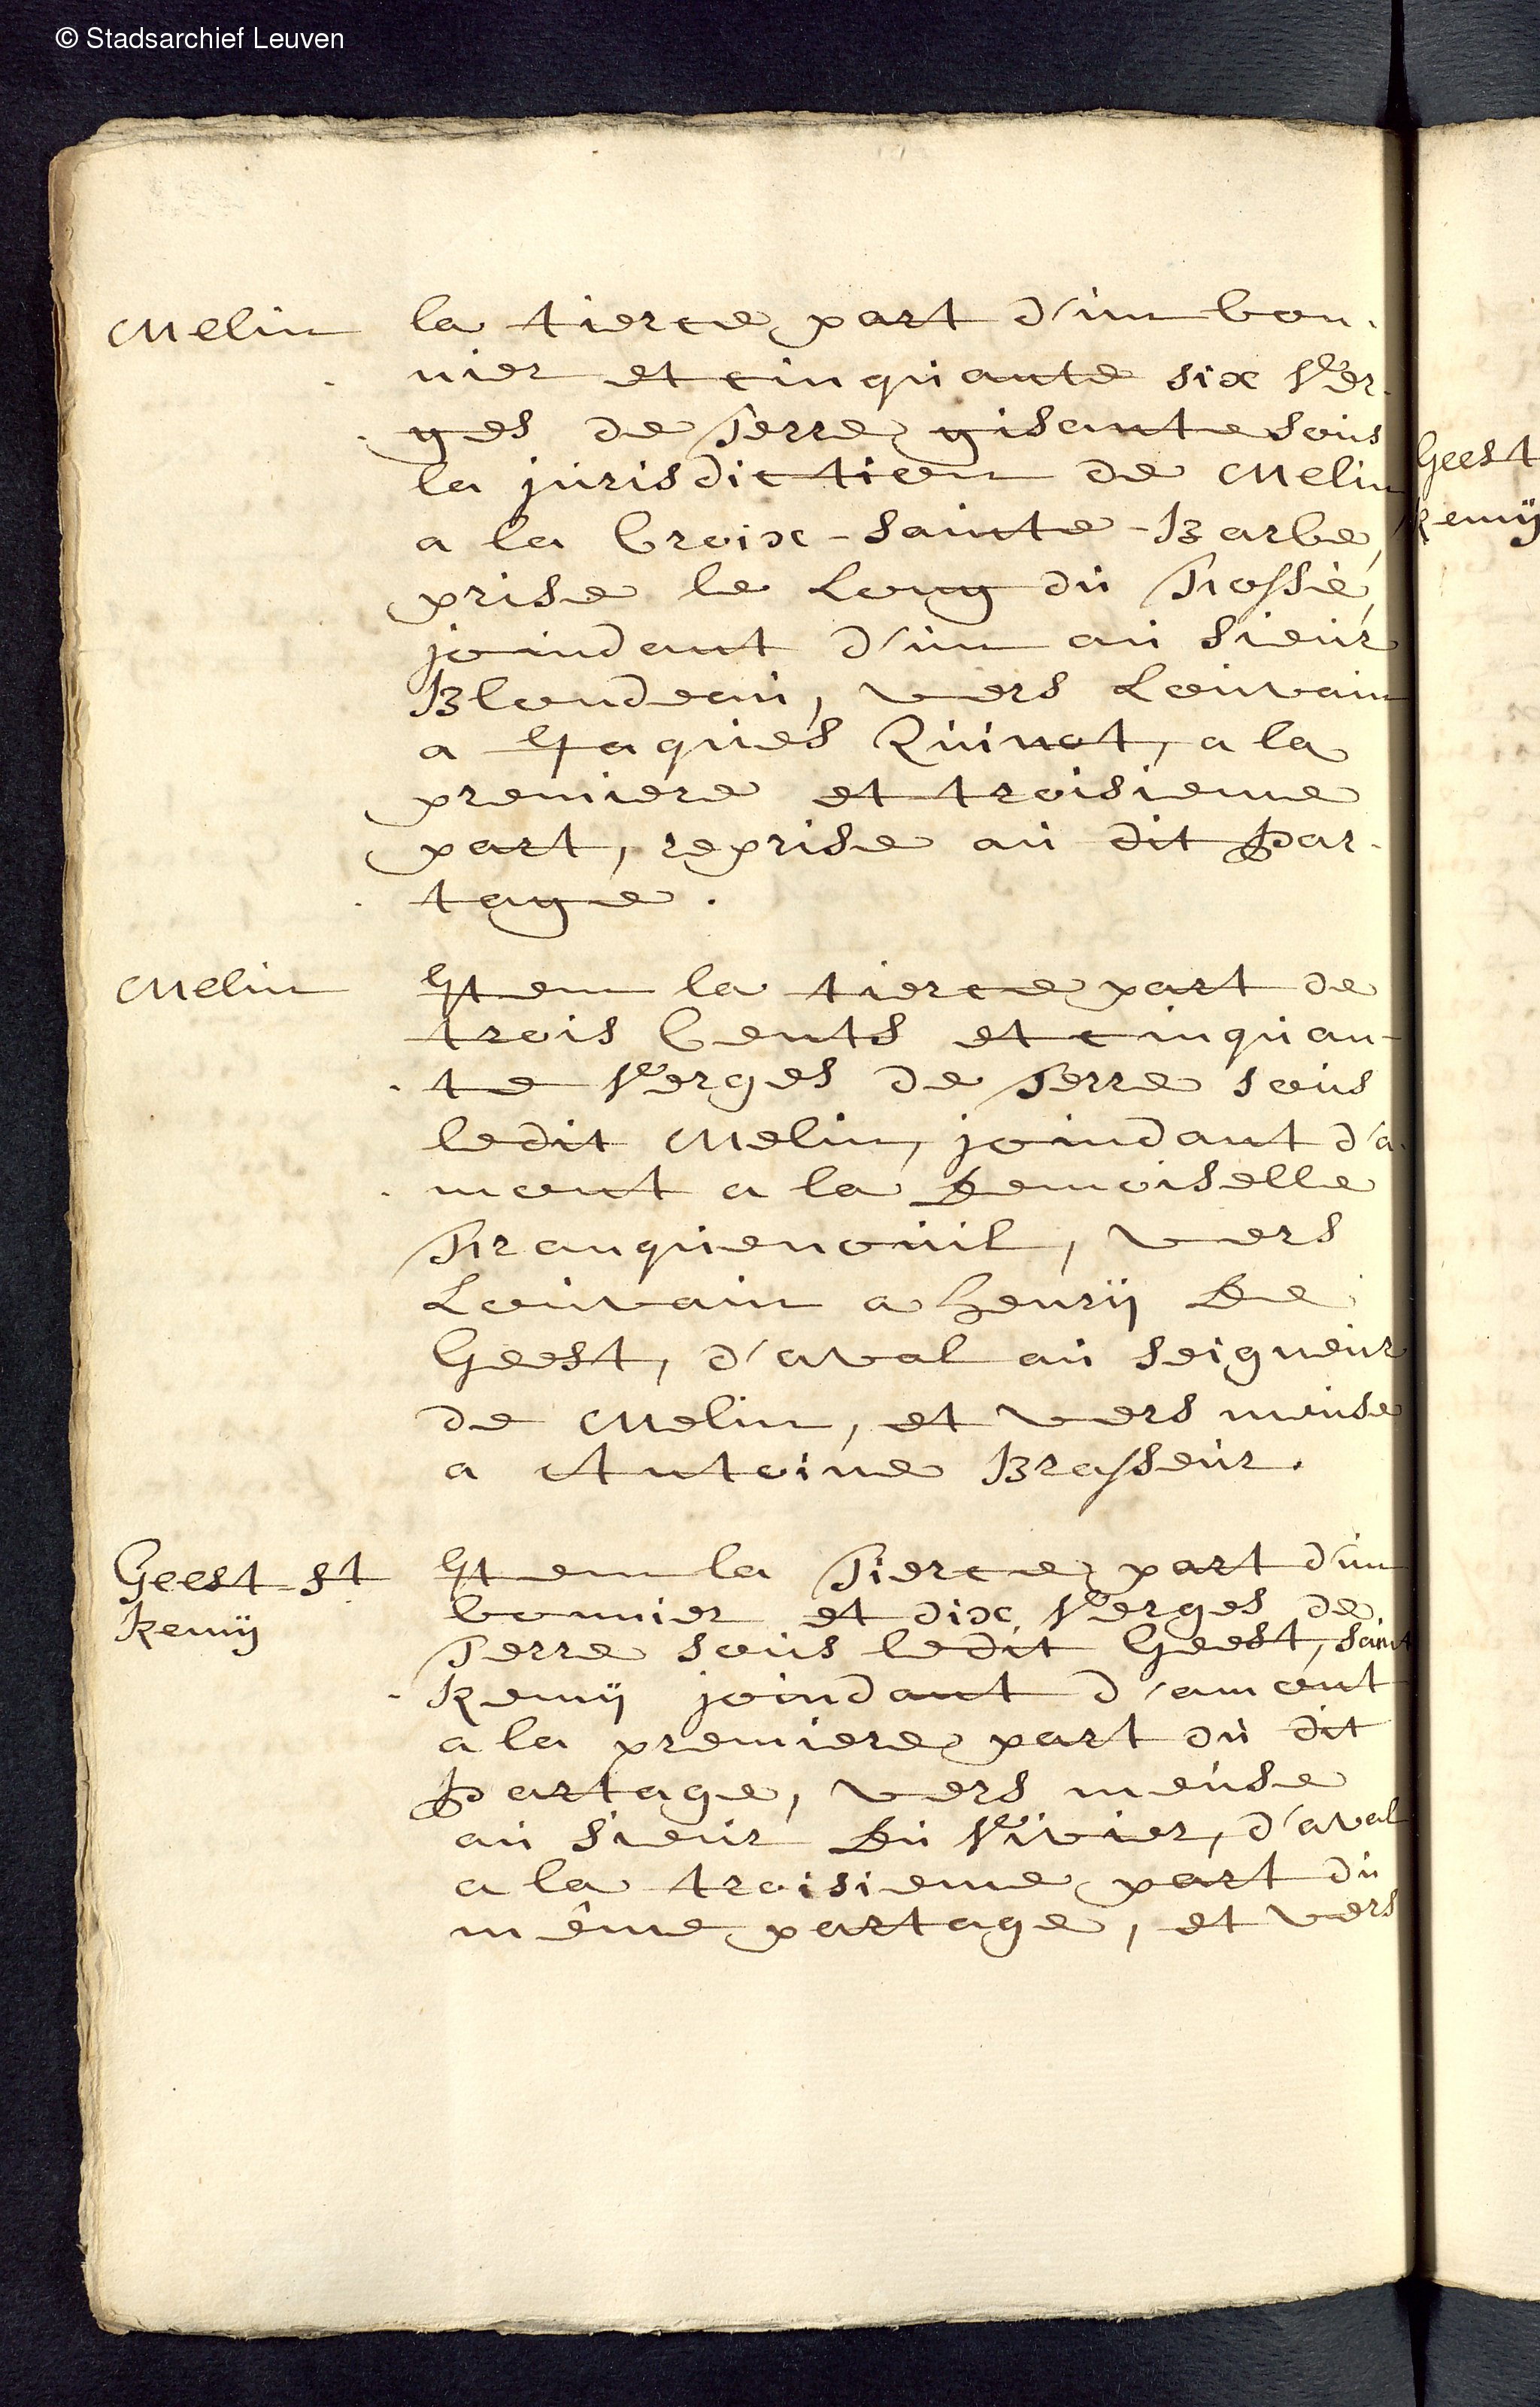 © Stadsarchief Leuven
Melin
la tierce part d'un bon-
nier et cinquante six Ver-
ges de Terre gisante sous
la jurisdiction de Melin
a la Croix-Sainte-Barbe,
prise le Long du Fossé,
joindant d'un au Sieur
Blondeau, vers Louvain
a Jaques Quinot, a la
premiere et troisieme
part, reprise au dit Par-
tage.
Melin
Item la tierce part de
trois Cents et cinquan-
te Verges de Terre sous
ledit Melin, joindant d'a-
mont a la Demoiselle
Franquenouil, vers
Louvain a Henrÿ De
Geest, d'aval au Seigneur
de Melin, et vers meuse
a Antoine Brasseur.
Geest St
Remÿ
Item la Tierce part d'un
bonnier et dix Verges de
Terre sous ledit Geest, Saint
Remÿ joindant d'amont
a la premiere part du dit
Partage, vers meuse
au Sieur Du Vivier, d'aval
a la troisieme part du
même partage, et vers
Geest
Remÿ